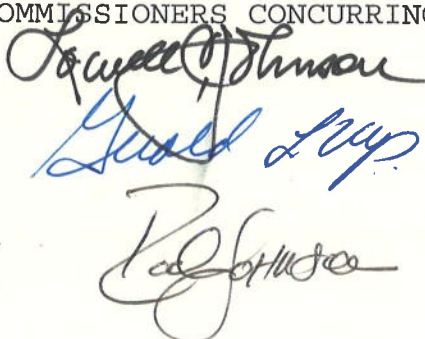 OMMISSIONERS CONCURRING
Lowell C Johnson
Gerald
Rod Johnson